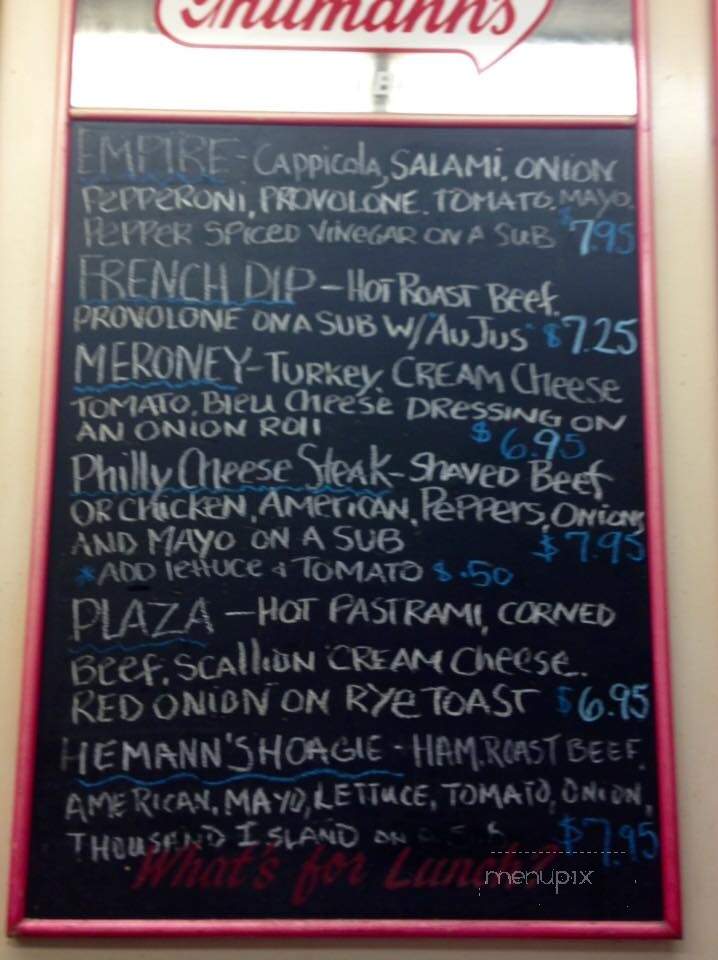 Thumann's
EMPIRE - Cappicola, SALAMI, ONION
PEPPERONI, PROVOLONE, TOMATO, MAYO,
PEPPER SPICED VINEGAR ON A SUB $7.95
FRENCH DIP - HOT ROAST Beef,
PROVOLONE ON A SUB W/ "AU JUS" $7.25
MERONEY - Turkey, CREAM Cheese
TOMATO, Bleu Cheese DRESSING ON
AN ONION Roll $6.95
Philly Cheese Steak - Shaved Beef
OR CHICKEN, AMERICAN, PEPPERS, ONIONS
AND MAYO ON A SUB $7.95
*ADD lettuce & TOMATO $.50
PLAZA - HOT PASTRAMI, CORNED
Beef, SCALLION CREAM Cheese,
RED ONION ON RYE TOAST $6.95
HEMANN'S HOAGIE - HAM, ROAST BEEF,
AMERICAN, MAYO, LETTUCE, TOMATO, ONION,
THOUSAND ISLAND ON A SUB $7.95
What's for Lunch?
menupix